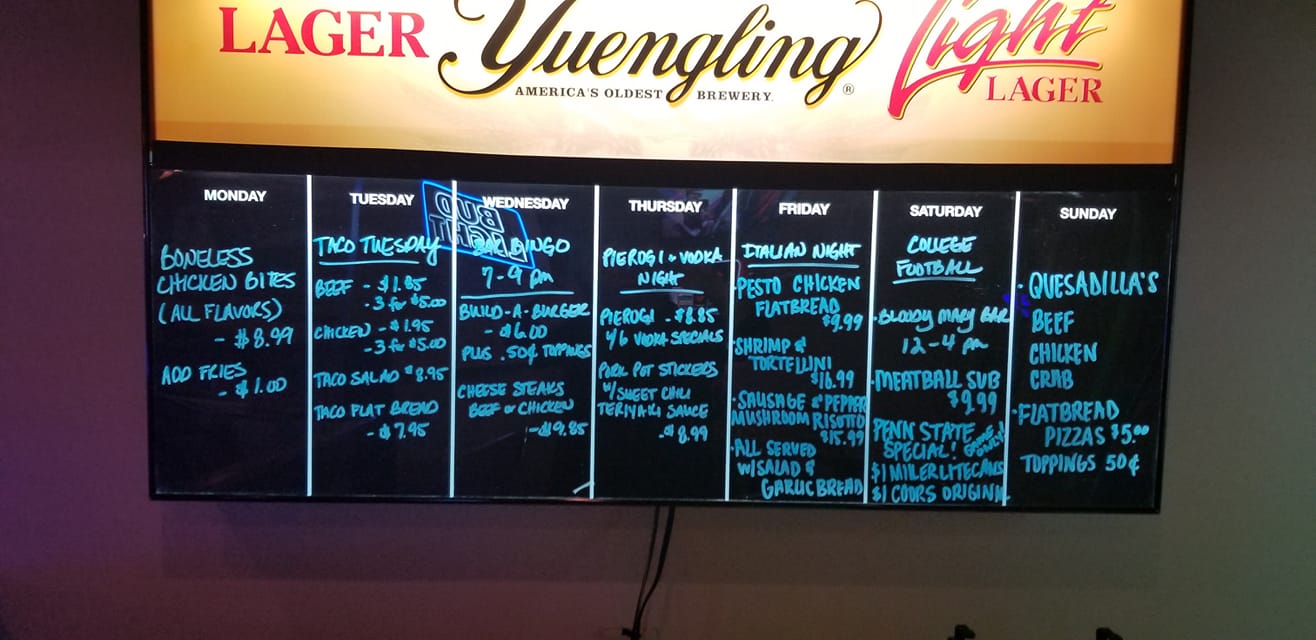 LAGER
Yuengling®
AMERICA'S OLDEST BREWERY.
Light
LAGER
MONDAY
BONELESS
CHICKEN BITES
(ALL FLAVORS)
- $8.99
ADD FRIES
- $1.00
TUESDAY
TACO TUESDAY
BEEF - $1.85
-3 for $5.00
CHICKEN - $1.95
-3 for $5.00
TACO SALAD $8.95
TACO FLAT BREAD
- $7.95
WEDNESDAY
BAR BINGO
7-9 pm
BUILD-A-BURGER
- $6.00
PLUS .50¢ TOPPINGS
CHEESE STEAKS
BEEF or CHICKEN
- $9.85
BUD
LIGHT
THURSDAY
PIEROGI & VODKA
NIGHT
PIEROGI - $8.85
VODKA SPECIALS
PORK POT STICKERS
W/SWEET CHILI
TERIYAKI SAUCE
- $8.99
FRIDAY
ITALIAN NIGHT
•PESTO CHICKEN
FLATBREAD
$9.99
•SHRIMP &
TORTELLINI
$16.99
•SAUSAGE & PEPPER
MUSHROOM RISOTTO
$15.99
•ALL SERVED
W/SALAD &
GARLIC BREAD
SATURDAY
COLLEGE
FOOTBALL
•BLOODY MARY BAR
12-4 pm
•MEATBALL SUB
$9.99
PENN STATE
SPECIAL! GAME ONLY!
$1 MILLER LITE CANS
$1 COORS ORIGINAL
SUNDAY
•QUESADILLA'S
BEEF
CHICKEN
CRAB
•FLATBREAD
PIZZAS $5.00
TOPPINGS 50¢